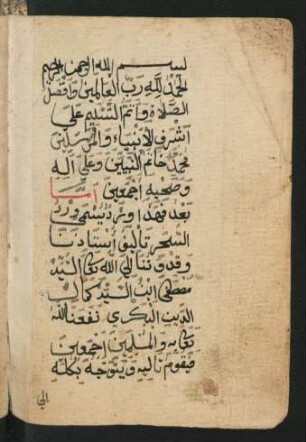 بسم الله الرحمن الرحيم
الحمد لله رب العالمين وافضل
الصلاة واتم التسليم علي
اشرف الانبياء والمرسلين
محمد خاتم النبيين وعلي اله
وصحبه اجمعين اما
بعد فهذا ورد يسمي ورد
السحر تاليف استاذنا
وقدوتنا الي الله تعالي السيد
مصطفى ابن السيد كمال
الدين البكري نفعنا الله
تعالي به والمسلمين اجمعين
فيقوم تاليه ويتوجه بكله
الي